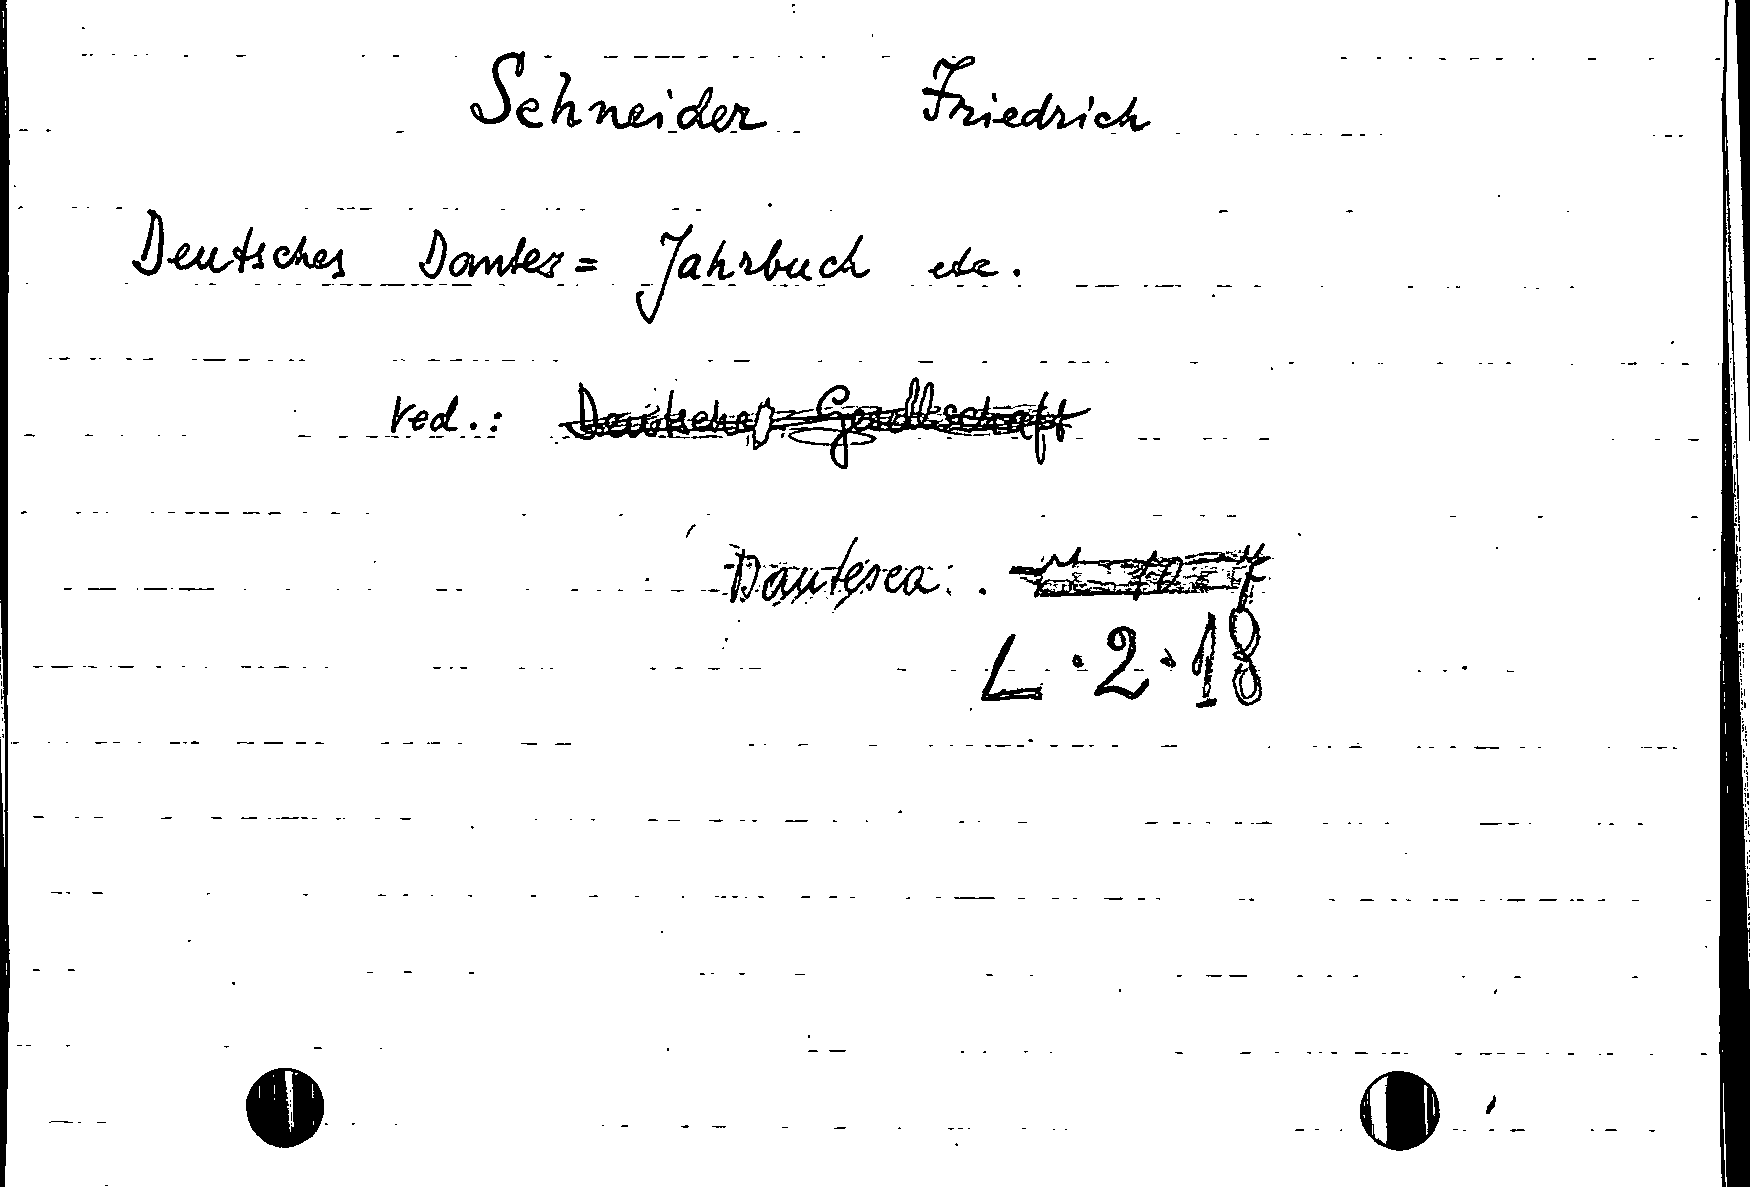 Schneider Friedrich
Deutsches Dantes= Jahrbuch etc.
ved.: Deutsche Gesellschaft
Dantesca:.
L.2.18